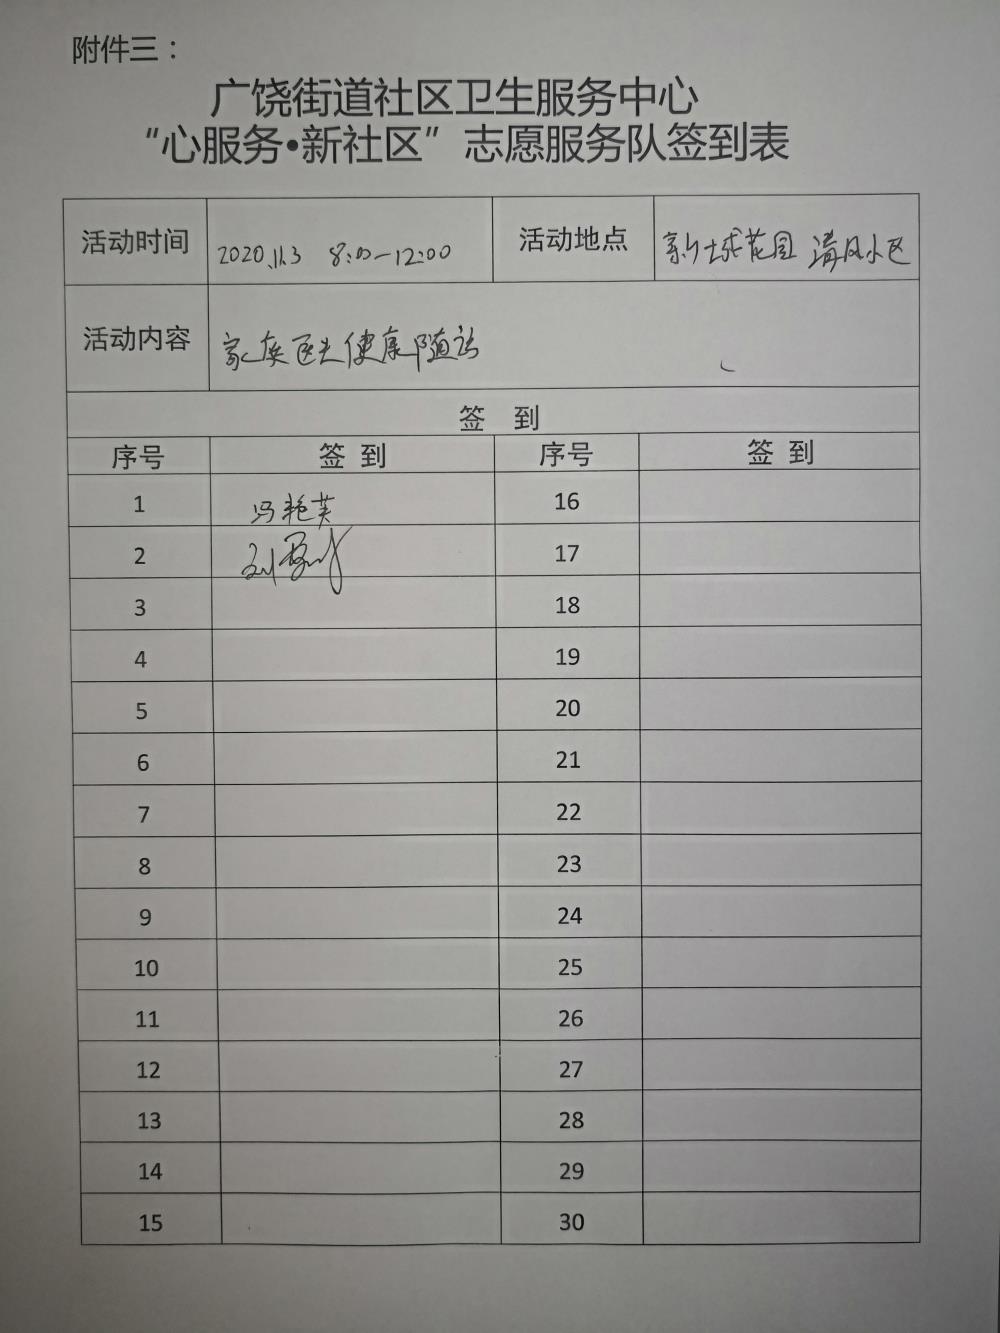 附件三：
广饶街道社区卫生服务中心
“心服务•新社区”志愿服务队签到表
活动时间 2020.11.3 8:00-12:00 活动地点 新城花园 清风小区
活动内容 家庭医生健康随访
签 到
序号 签 到 序号 签 到
1 冯艳芙 16
2 刘 17
3 18
4 19
5 20
6 21
7 22
8 23
9 24
10 25
11 26
12 27
13 28
14 29
15 30